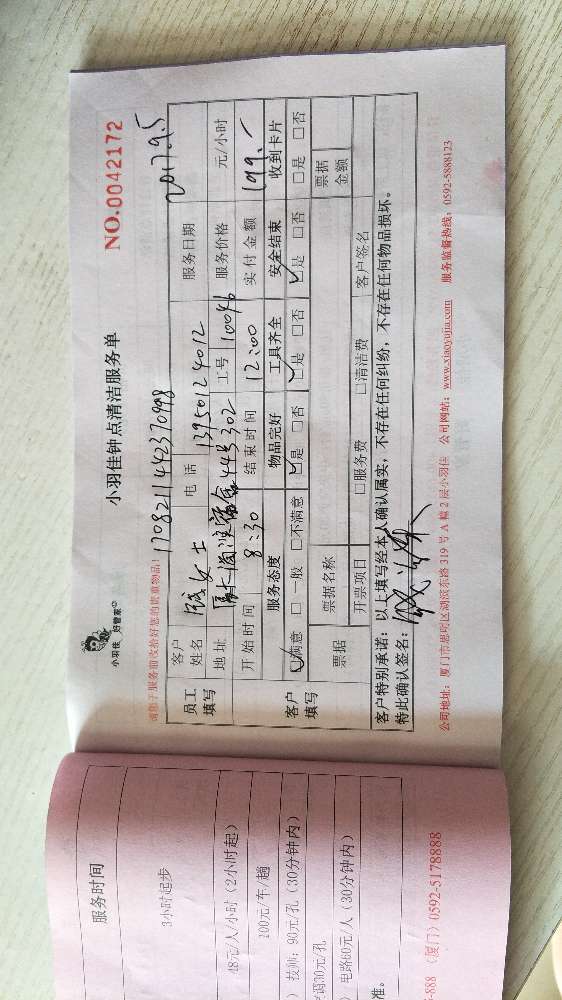 小羽佳 好管家
小羽佳钟点清洁服务单
NO.0042172
请您于服务前收拾好您的贵重物品!
170821144237098
员工填写
客户姓名
女士
电话
13950124012
服务日期
2017.9.5
地址
445 302
工号
10046
服务价格
元/小时
开始时间
8:30
结束时间
12:00
实付金额
199.-
客户填写
服务态度
物品完好
工具齐全
安全结束
收到卡片
☑满意 □一般 □不满意
☑是 □否
☑是 □否
☑是 □否
□是 □否
票据
票据名称
票据金额
开票项目
□服务费
□清洁费
客户签名
客户特别承诺:以上填写经本人确认属实,不存在任何纠纷,不存在任何物品损坏。
特此确认签名:
公司地址:厦门市思明区湖滨东路 319 号 A 幢 2 层小羽佳 公司网站:www.xiaoyujia.com 服务监督热线:0592-5888123
服务时间
3小时起步
48元/人/小时(2小时起)
200元/车/趟
)技师:90元/孔(30分钟内)
调30元/孔
)电路60元/人(30分钟内)
准。
-888 (厦门)0592-5178888